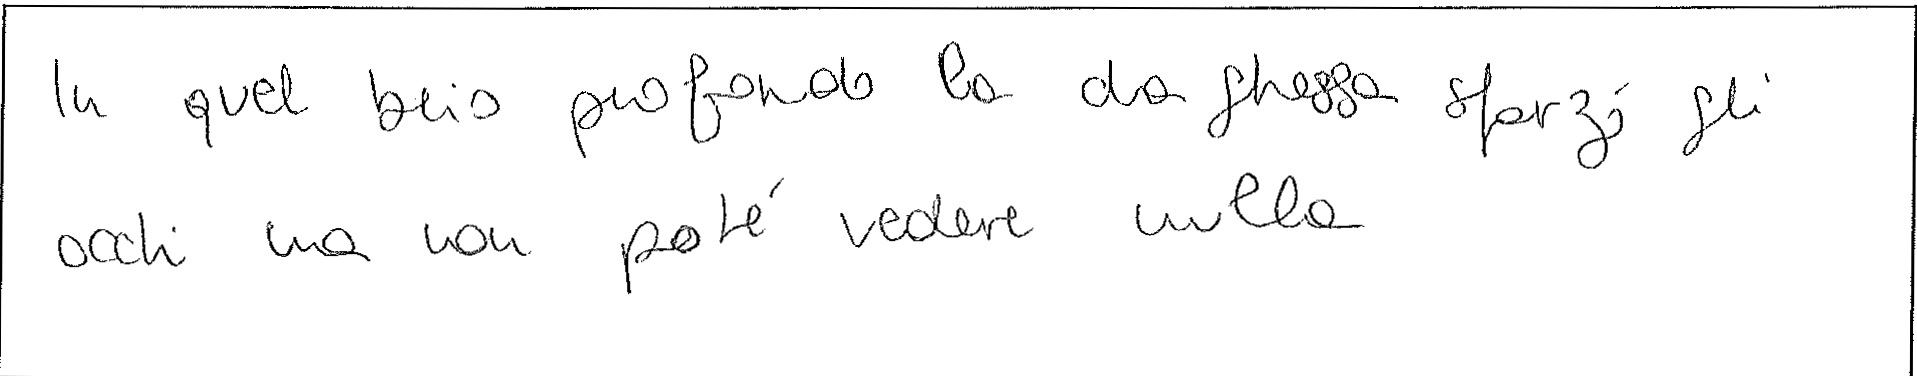 In quel buio profondo la da ghessa sforzò gli
occhi ma non poté vedere nulla